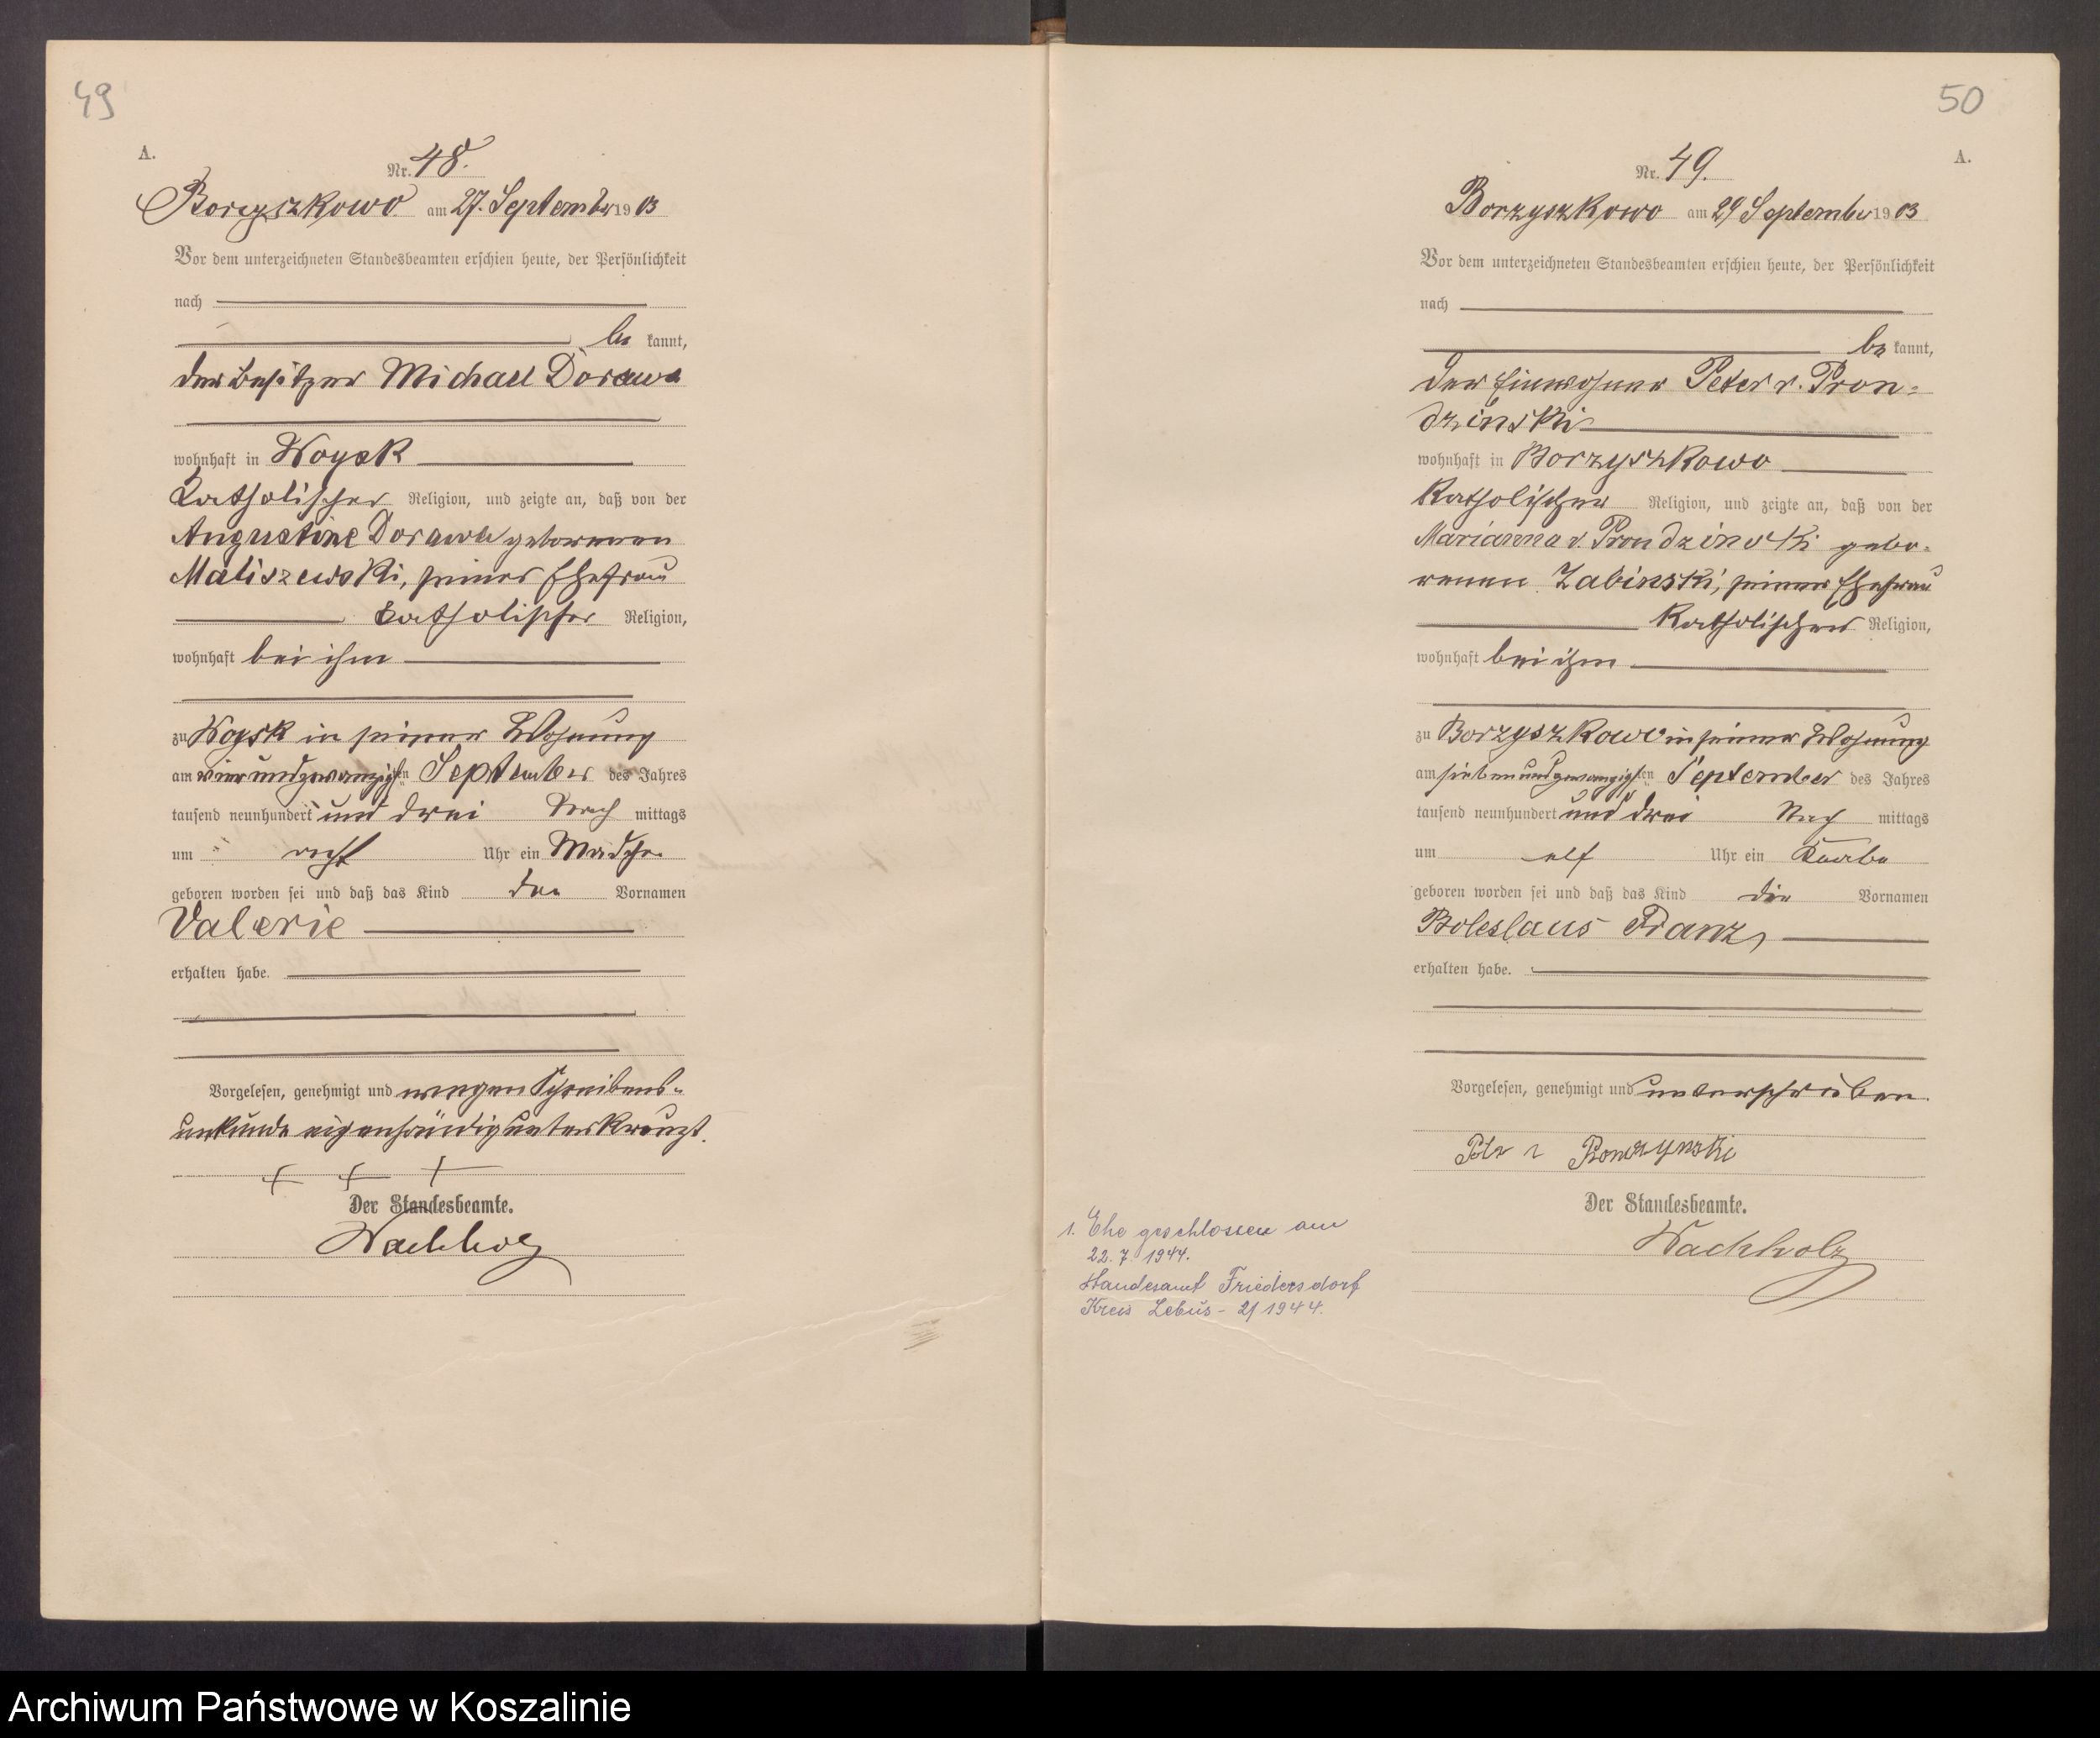 49
A.
Nr. 48.
Borzyszkowo am 27. September 1903
Vor dem unterzeichneten Standesbeamten erschien heute, der Persönlichkeit
nach
be kannt,
der Besitzer Michael Dorawa
wohnhaft in Woysk
katholischer Religion, und zeigte an, daß von der
Augustine Dorawa geborenen
Maliszewski, seiner Ehefrau
katholischer Religion,
wohnhaft bei ihm
zu Woysk in seiner Wohnung
am vierundzwanzigsten September des Jahres
tausend neunhundert und drei Nach mittags
um acht Uhr ein Mädchen
geboren worden sei und daß das Kind den Vornamen
Valerie
erhalten habe.
Vorgelesen, genehmigt und wegen Schreibens-
unkunde eigenhändig unterkreuzt.
+ + +
Der Standesbeamte.
Wachholz
50
A.
Nr. 49.
Borzyszkowo am 29 September 1903
Vor dem unterzeichneten Standesbeamten erschien heute, der Persönlichkeit
nach
be kannt,
der Einwohner Peter v. Pron-
dzinski
wohnhaft in Borzyszkowo
katholischer Religion, und zeigte an, daß von der
Marianna v. Prondzinski gebo-
renen Zabinski, seiner Ehefrau
katholischer Religion,
wohnhaft bei ihm
zu Borzyszkowo in seiner Wohnung
am siebenundzwanzigsten September des Jahres
tausend neunhundert und drei Nach mittags
um elf Uhr ein Knabe
geboren worden sei und daß das Kind die Vornamen
Boleslaus Franz
erhalten habe.
Vorgelesen, genehmigt und unterschrieben.
Der Standesbeamte.
Wachholz
1. Ehe geschlossen am
22. 7. 1944.
Standesamt Friedersdorf
Kreis Lebus - 2/1944.
Archiwum Państwowe w Koszalinie